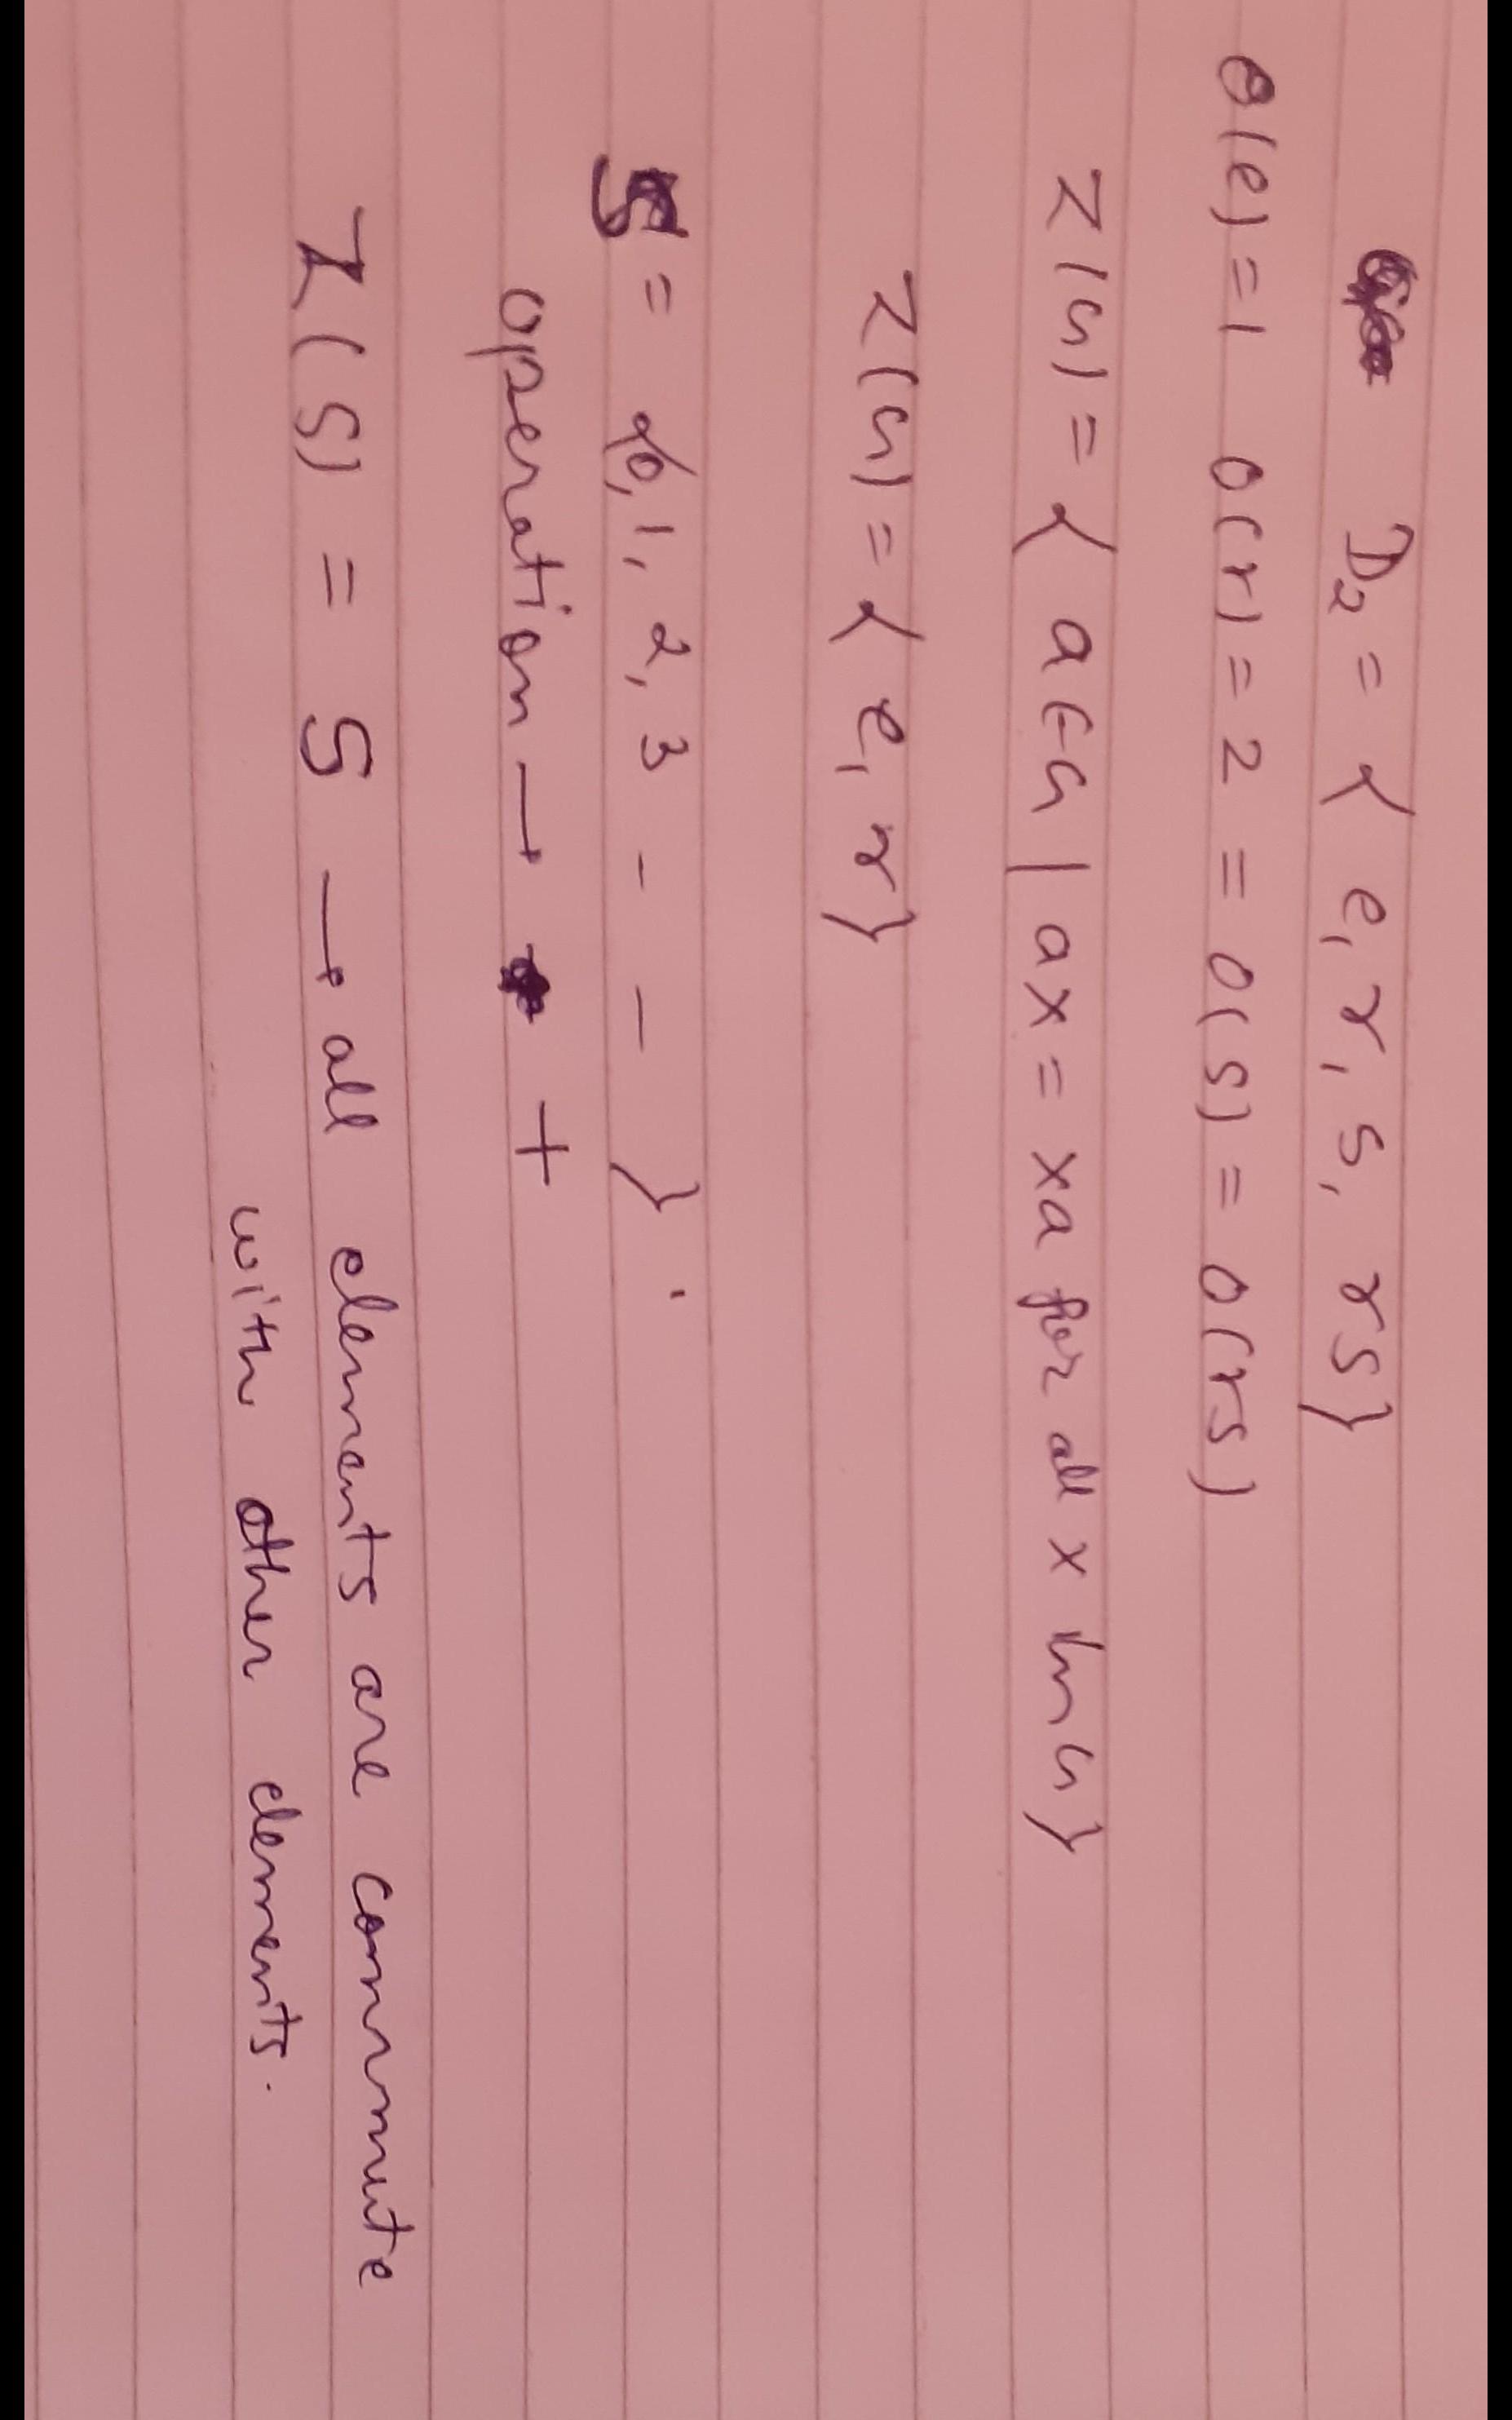 D₂ = { e, r, s, rs}
O(e) = 1 O(r) = 2 = O(s) = O(rs)
Z(G) = { a ∈ G | ax = xa for all x in G}
Z(G) = { e, r}
S = {0, 1, 2, 3 - - - }.
operation → +
Z(S) = S → all elements are commute
with other elements.